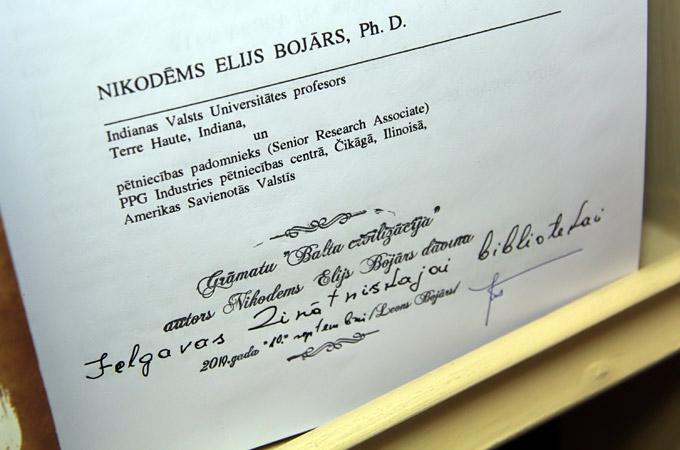 NIKODĒMS ELIJS BOJĀRS, Ph. D.
Indianas Valsts Universitātes profesors
Terre Haute, Indiana,
un
pētniecības padomnieks (Senior Research Associate)
PPG Industries pētniecības centrā, Čikāgā, Ilinoisā,
Amerikas Savienotās Valstīs
Grāmatu "Baltu civilizācija"
autors Nikodems Elijs Bojārs dāvina
Jelgavas Zinātniskajai bibliotekai
2010.gada "10." septembrī /Leons Bojārs/